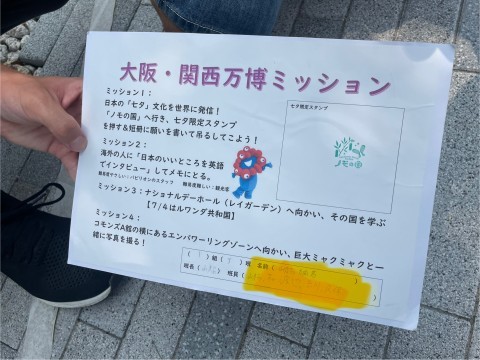 大阪・関西万博ミッション
ミッション1:
日本の「七夕」文化を世界に発信!
「ノモの国」へ行き、七夕限定スタンプ
を押す&短冊に願いを書いて吊るしてこよう!
七夕限定スタンプ
ノモの国
ミッション2:
海外の人に「日本のいいところを英語
でインタビュー」してメモにとる。
難易度やさしい:パビリオンのスタッフ 難易度難しい:観光客
ミッション3:ナショナルデーホール(レイガーデン)へ向かい、その国を学ぶ
【7/4はルワンダ共和国】
ミッション4:
コモンズA館の横にあるエンパワーリングゾーンへ向かい、巨大ミャクミャクと一
緒に写真を撮る!
( )組( )班 名前(
班長( ) 班員(